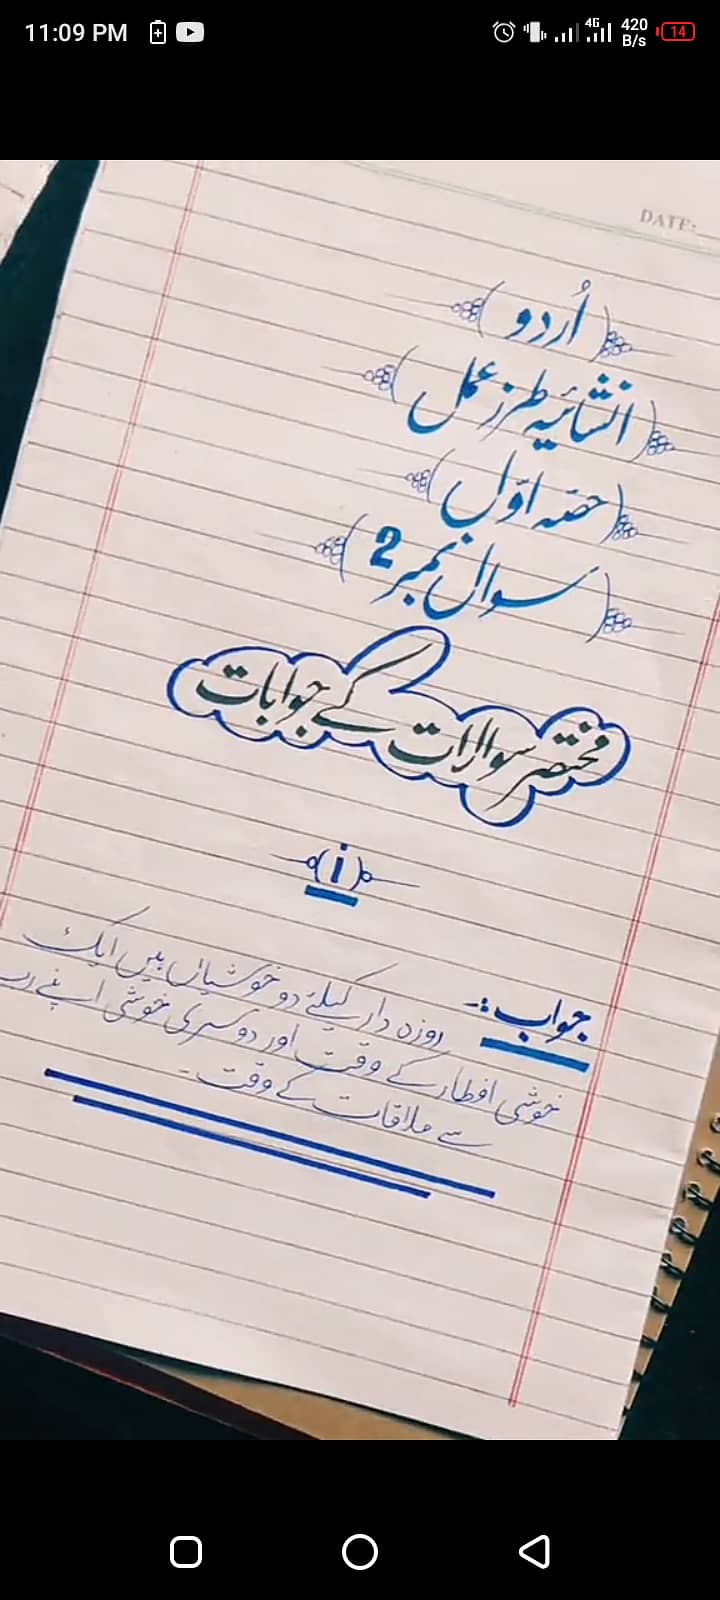 11:09 PM
4G
420 B/s
14
DATE:
(اُردو)
(انشائیہ طرز عمل)
(حصّہ اوّل)
(سوال نمبر 2)
مختصر سوالات کے جوابات
(i)
جواب:- روزہ دار کیلئے دو خوشیاں ہیں ایک
خوشی افطار کے وقت اور دوسری خوشی اپنے رب
سے ملاقات کے وقت۔